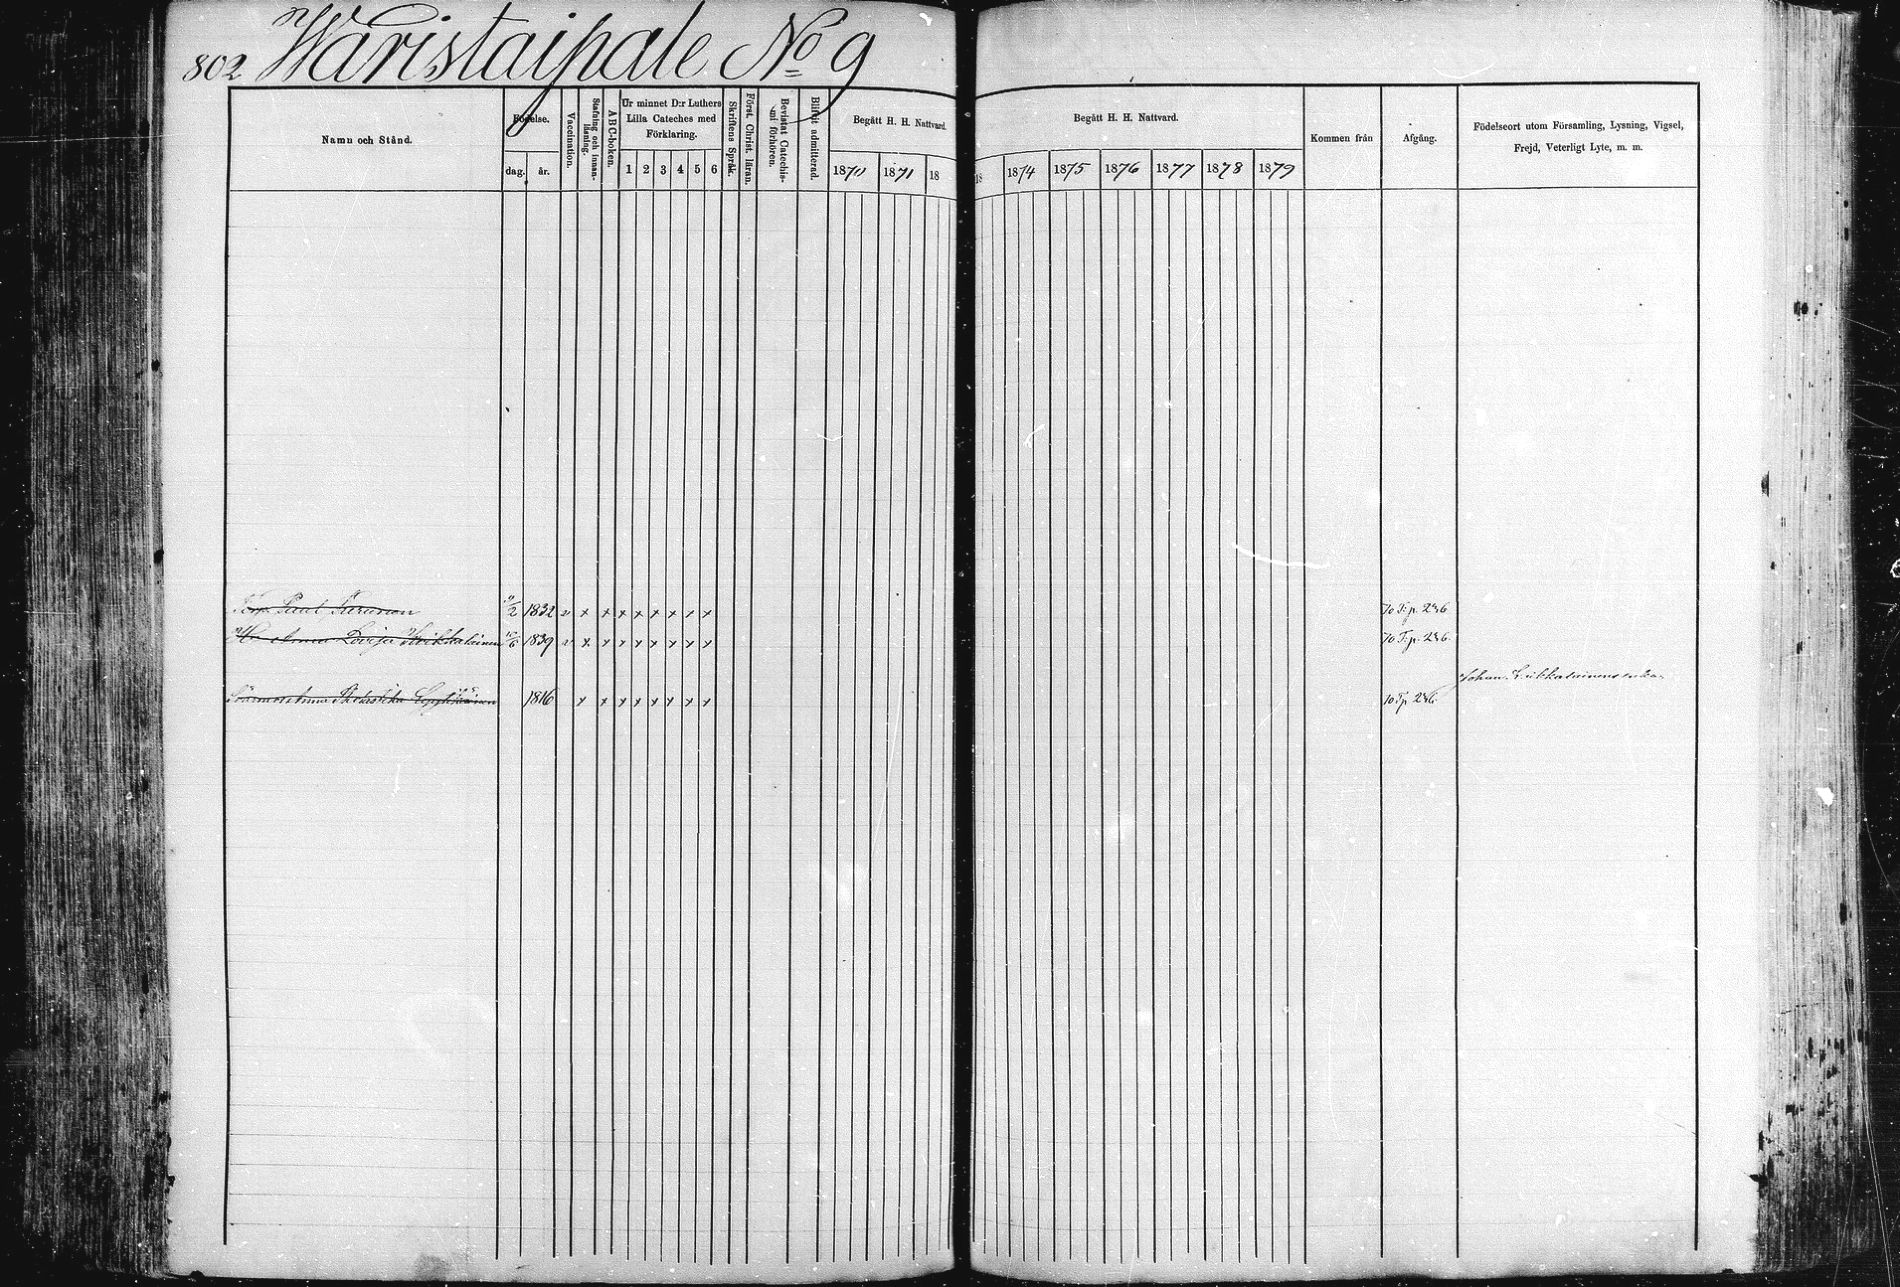 802 Waristaipale No 9
Namn och Stånd.
Födelse.
dag. år.
Vaccination.
Stafning och innanläsning.
ABC-boken.
Ur minnet D:r Luthers
Lilla Cateches med
Förklaring.
1 2 3 4 5 6
Skriftens Språk.
Först. Christ. läran.
Bevistat Catechismi förhören.
Blifvit admitterad.
Begått H. H. Nattvard.
1870 1871 18
Begått H. H. Nattvard.
18 1874 1875 1876 1877 1878 1879
Kommen från
Afgång.
Födelseort utom Församling, Lysning, Vigsel,
Frejd, Veterligt Lyte, m. m.
Paul 1832 v x x x x x x x x 70 T.p. 246
H. Anna Lovisa 1839 v x x x x x x x x 70 T.p. 246.
Johan
Anna 1816 x x x x x x x x 70 T.p. 246.